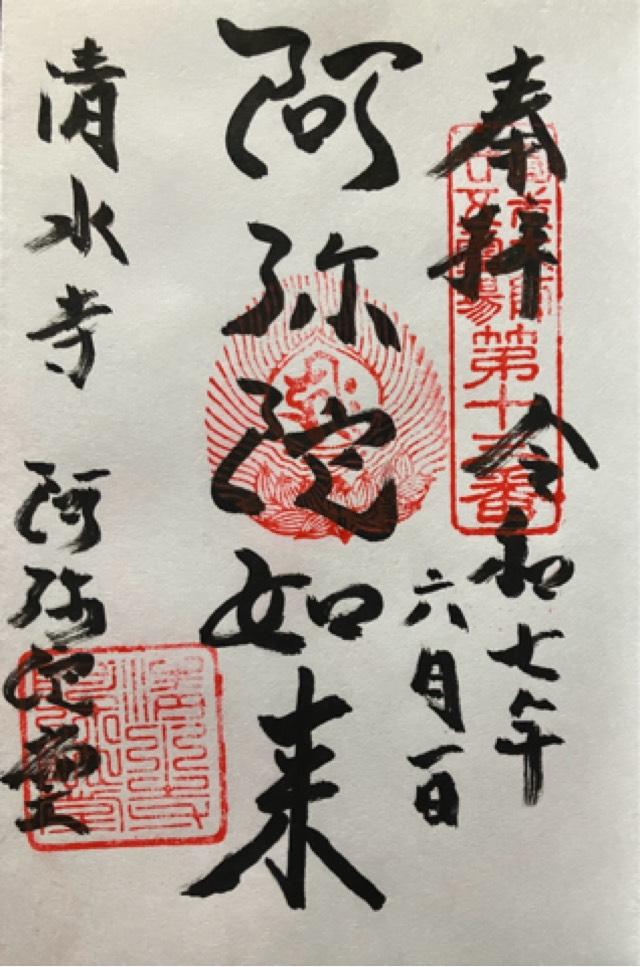 奉拝 令和七年
六月一日
第十三番
阿弥陀如来
清水寺 阿弥陀堂